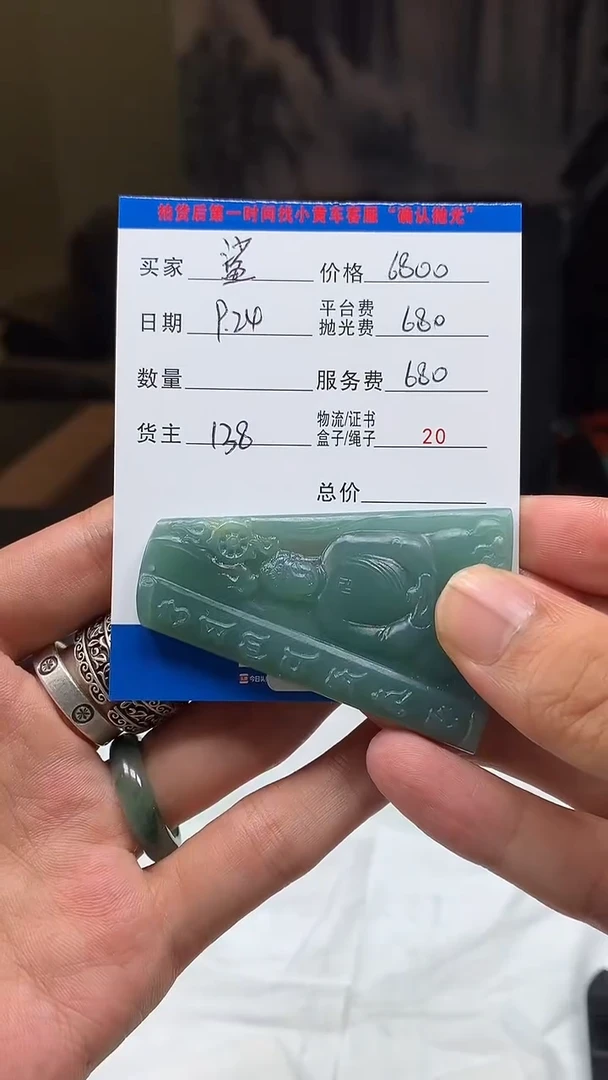 拍货后第一时间找小黄车客服“确认抛光”
买家 鲨 价格 6800
日期 9.24 平台费 抛光费 680
数量 服务费 680
货主 138 物流/证书 盒子/绳子 20
总价
卍